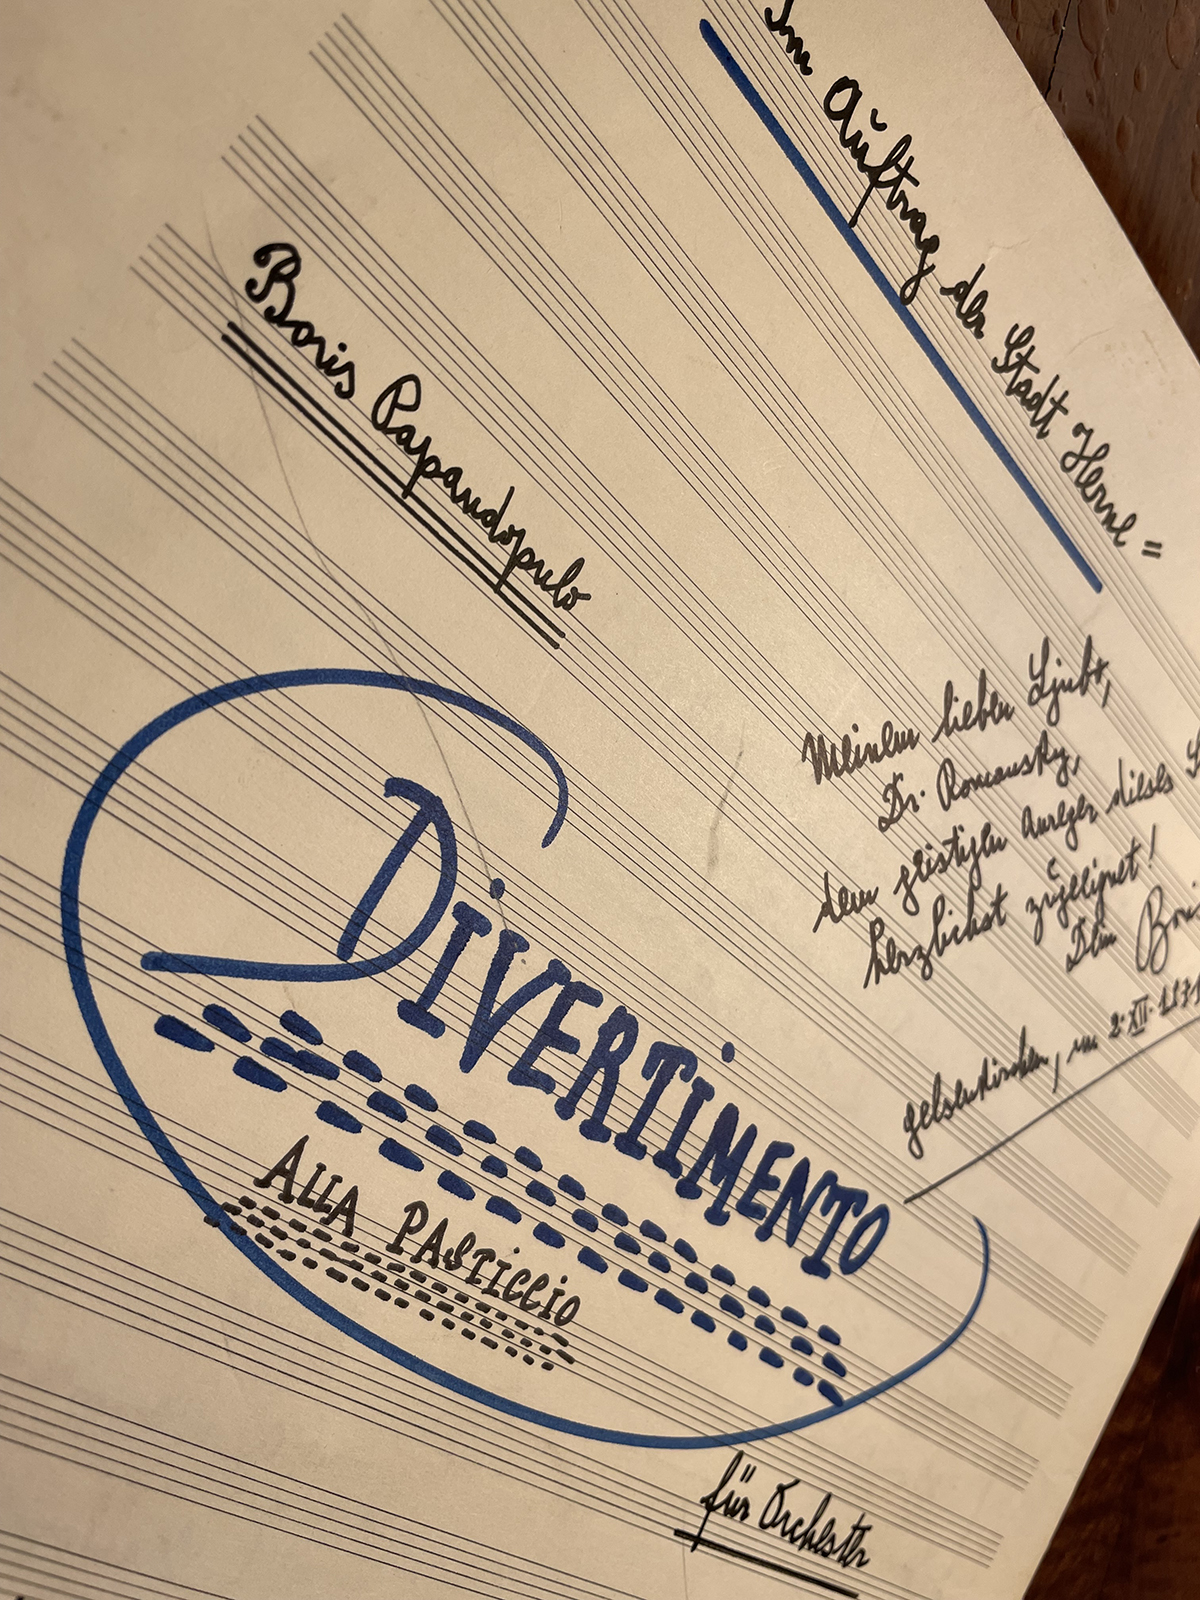 Im Auftrag der Stadt Herne =
Boris Papandopulo
Meinem lieben Ljubo,
Dr. Romansky,
dem geistigen Anreger dieses
herzlichst zugeeignet!
Dein
Gelsenkirchen, am 2. XII. 1971
DIVERTIMENTO
ALLA PASTICCIO
für Orchester